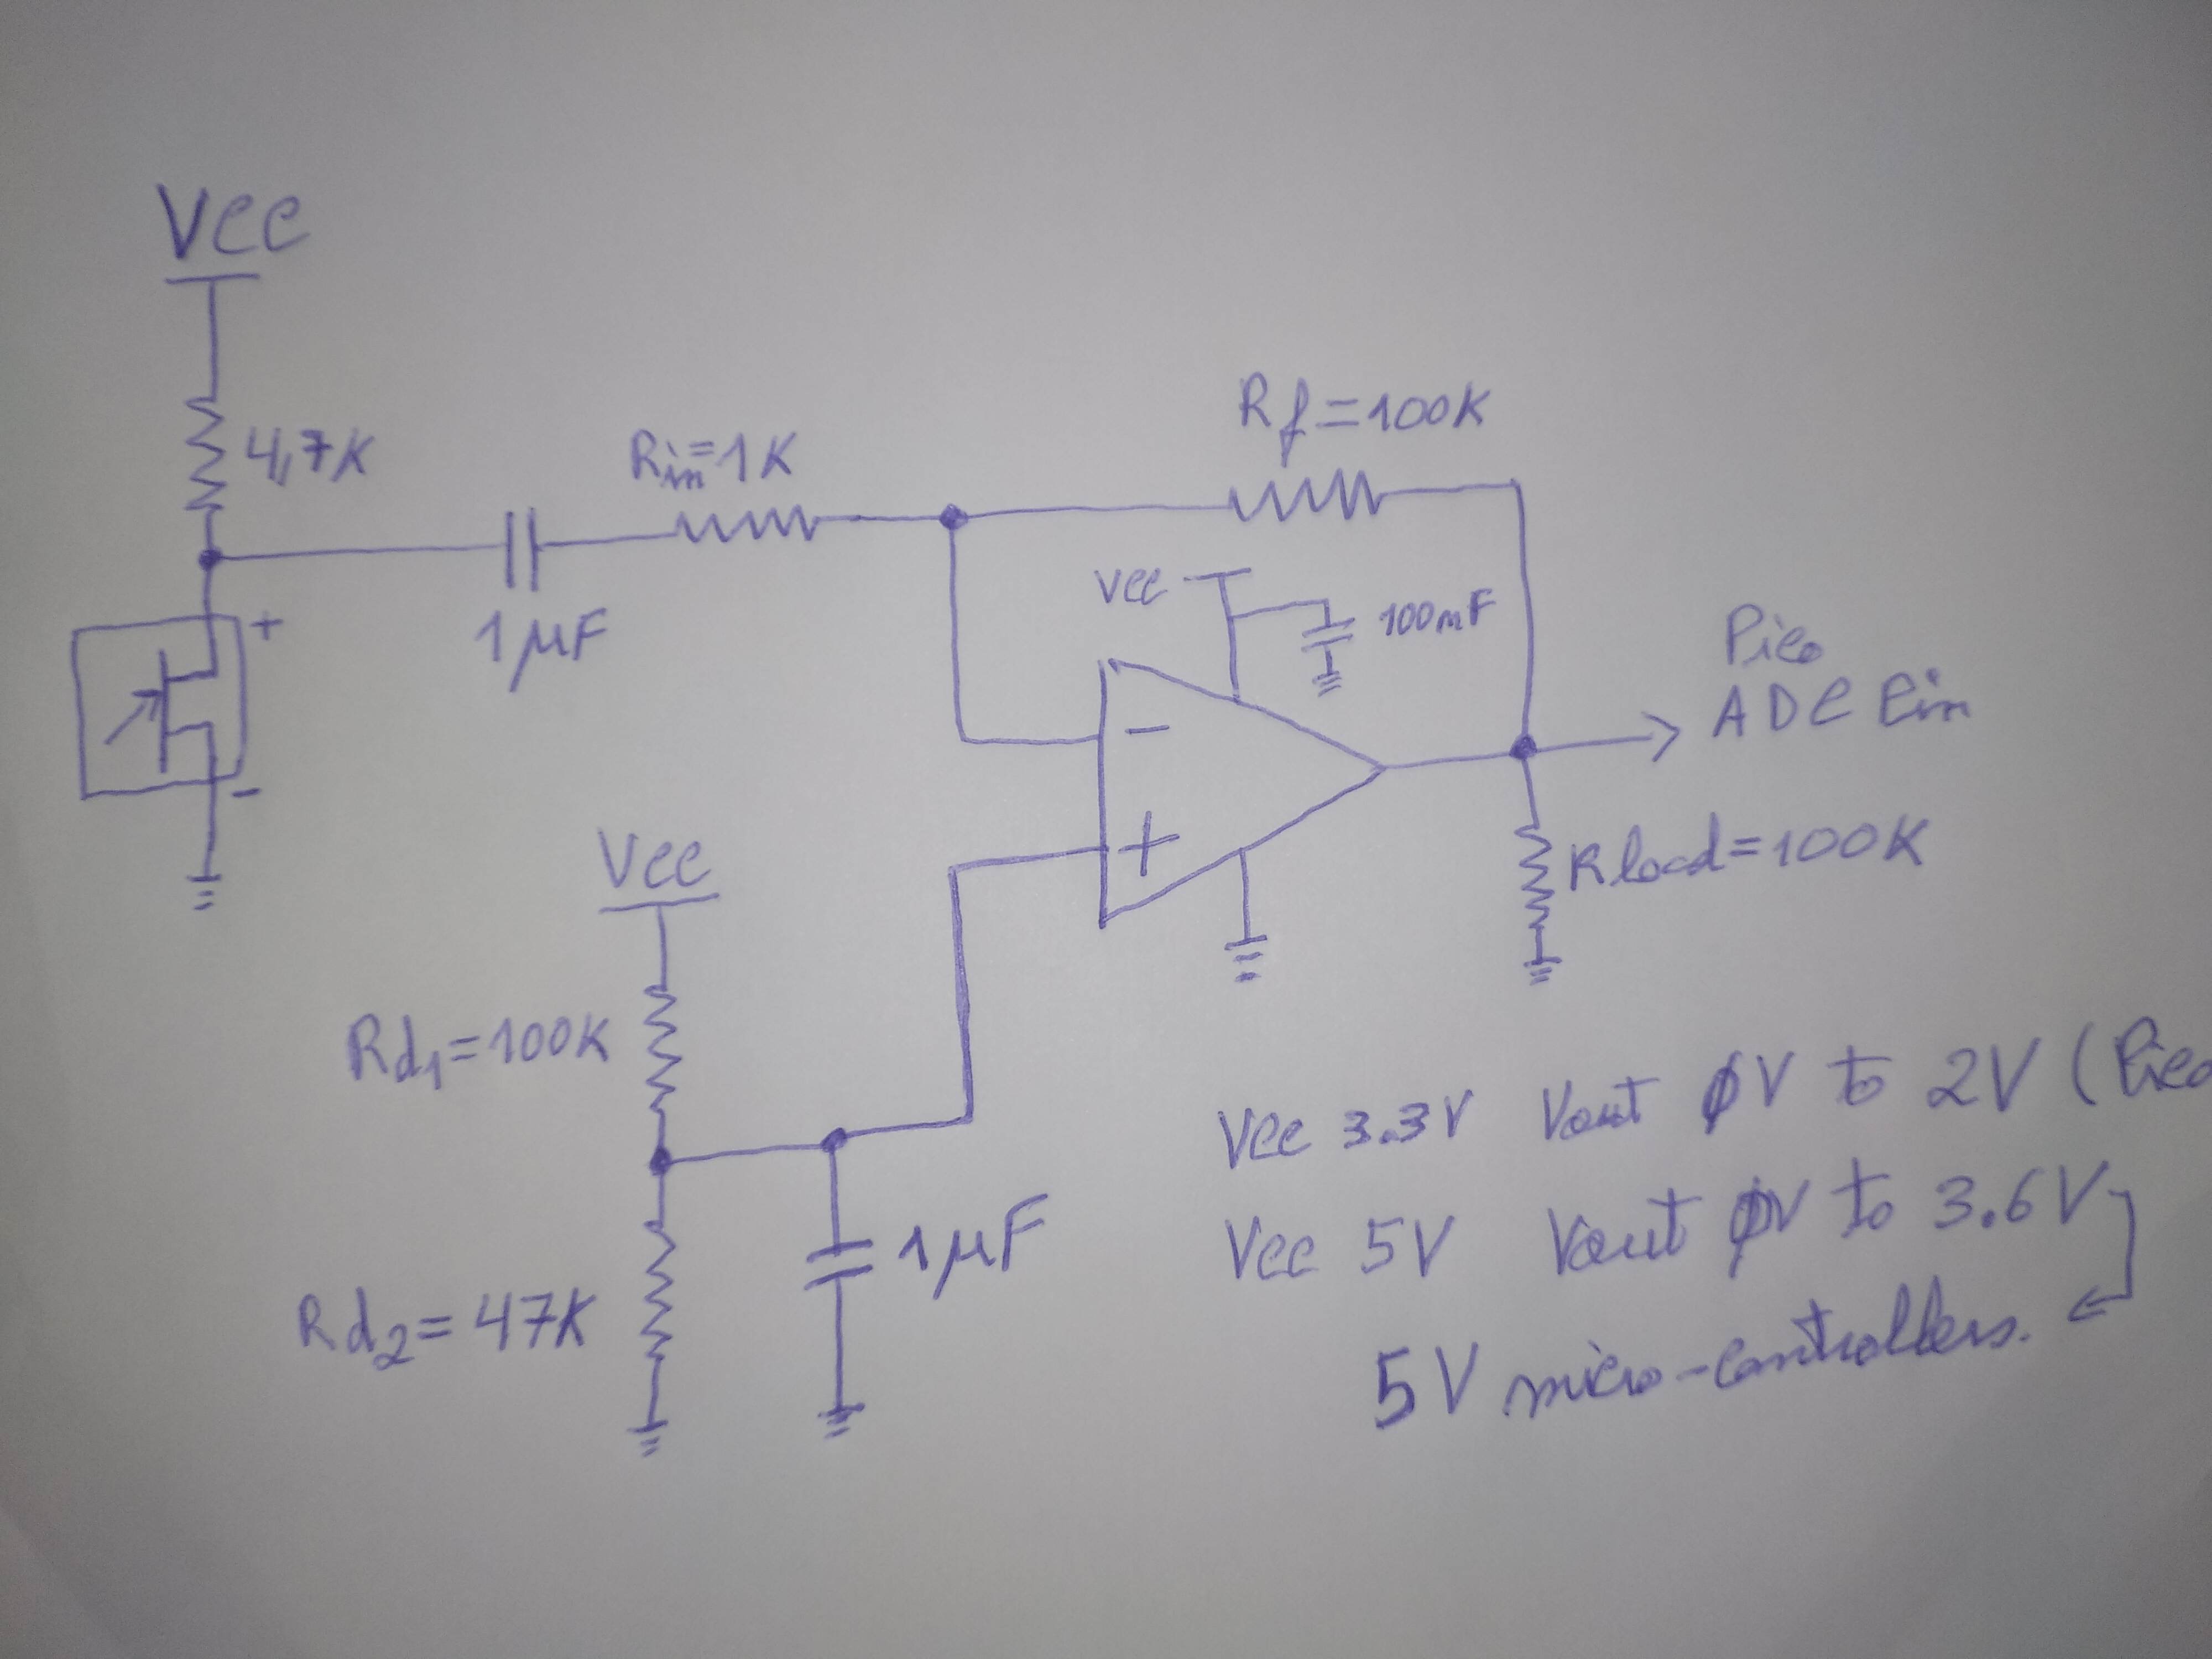 Vcc
4,7K
Rin=1K
Rf=100K
1µF
+
-
Vcc
100mF
-
+
Pico
ADC Pin
Rload=100K
Vcc
Rd1=100K
Rd2=47K
1µF
Vcc 3.3V Vout ØV to 2V (Pico
Vcc 5V Vout ØV to 3.6V
5V micro-controllers.